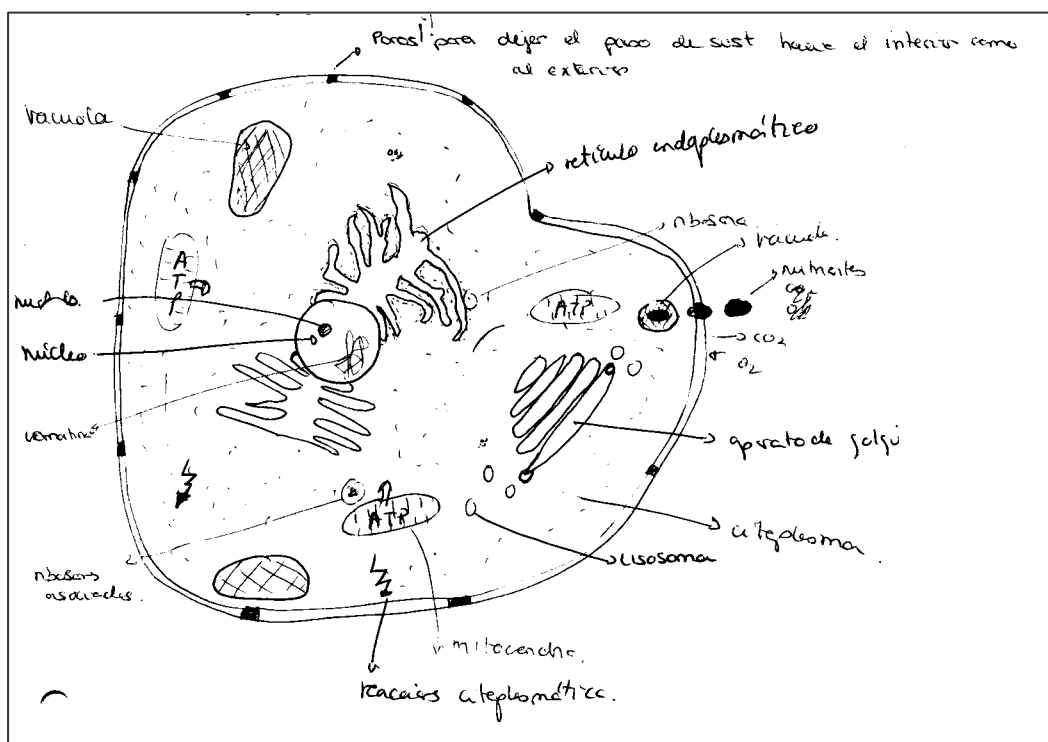 Poros!! para dejar el paso de sust hacia el interior como
al exterior
vacuola
retículo endoplasmático
ribosoma
vacuola.
nutrientes
ATP
ATP
núcleo
CO2
O2
aparato de golgi
citoplasma
ATP
lisosoma
ribosomas
asociados.
mitocondria.
reacciones citoplasmática.